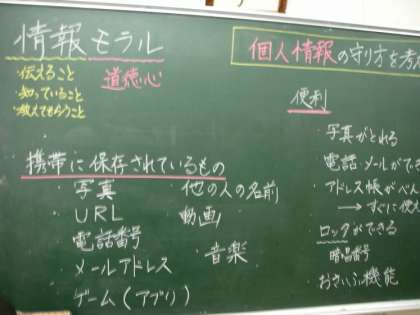 情報モラル
・伝えること
・知っていること
・教えてもらうこと
道徳心
個人情報の守り方を考
携帯に保存されているもの
・写真
・URL
・電話番号
・メールアドレス
・ゲーム(アプリ)
・他の人の名前
・動画
・音楽
便利
・写真がとれる
電話 メールができ
・アドレス帳がべん
→すぐに使え
・ロックができる
暗証番号
・おさいふ機能